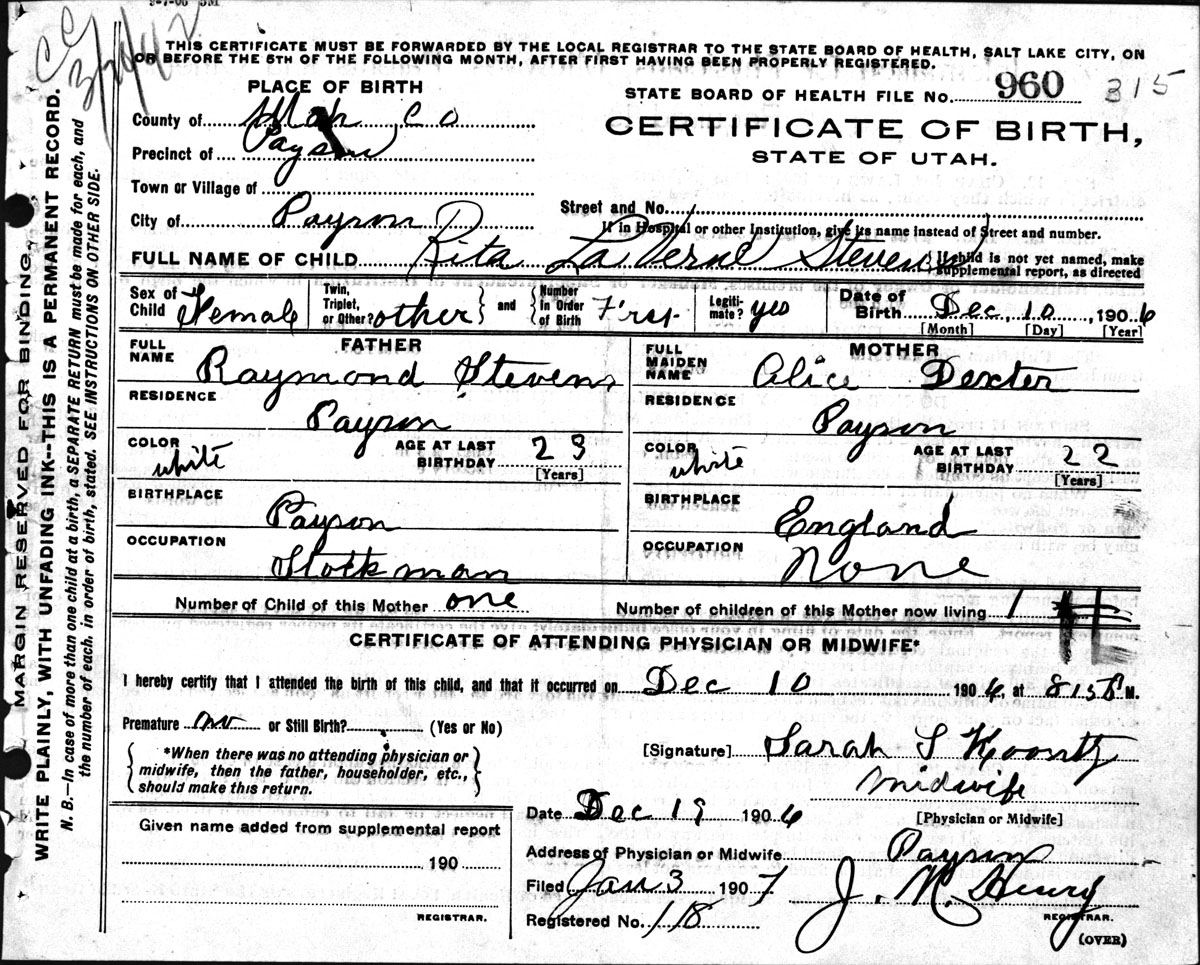 9-7-06 3M
3/24/42
THIS CERTIFICATE MUST BE FORWARDED BY THE LOCAL REGISTRAR TO THE STATE BOARD OF HEALTH, SALT LAKE CITY, ON
OR BEFORE THE 5TH OF THE FOLLOWING MONTH, AFTER FIRST HAVING BEEN PROPERLY REGISTERED.
PLACE OF BIRTH
STATE BOARD OF HEALTH FILE No. 960 315
County of Utah Co
CERTIFICATE OF BIRTH,
STATE OF UTAH.
Precinct of Payson
Town or Village of
City of Payson
Street and No.
If in Hospital or other Institution, give its name instead of Street and number.
FULL NAME OF CHILD Rita LaVerne Stevens
If child is not yet named, make
supplemental report, as directed
Sex of Child Female
Twin, Triplet, or Other? other
and Number in Order of Birth First
Legitimate? yes
Date of Birth Dec, 10, 1906
[Month] [Day] [Year]
FATHER
FULL NAME Raymond Stevens
RESIDENCE
Payson
COLOR white
AGE AT LAST BIRTHDAY 23
[Years]
BIRTHPLACE
Payson
OCCUPATION
Stockman
MOTHER
FULL MAIDEN NAME Alice Dexter
RESIDENCE
Payson
COLOR white
AGE AT LAST BIRTHDAY 22
[Years]
BIRTHPLACE
England
OCCUPATION
None
Number of Child of this Mother one
Number of children of this Mother now living 1
CERTIFICATE OF ATTENDING PHYSICIAN OR MIDWIFE*
I hereby certify that I attended the birth of this child, and that it occurred on Dec 10 1906, at 815 P M.
Premature no or Still Birth? (Yes or No)
*When there was no attending physician or
midwife, then the father, householder, etc.,
should make this return.
[Signature] Sarah S Koontz
midwife
[Physician or Midwife]
Date Dec 19 1906
Given name added from supplemental report
190
REGISTRAR.
Address of Physician or Midwife Payson
Filed Jan 3 1907
J. M. Henry
REGISTRAR.
Registered No. 118
(OVER)
MARGIN RESERVED FOR BINDING.
WRITE PLAINLY, WITH UNFADING INK--THIS IS A PERMANENT RECORD.
N. B.—In case of more than one child at a birth, a SEPARATE RETURN must be made for each, and
the number of each, in order of birth, stated. SEE INSTRUCTIONS ON OTHER SIDE.